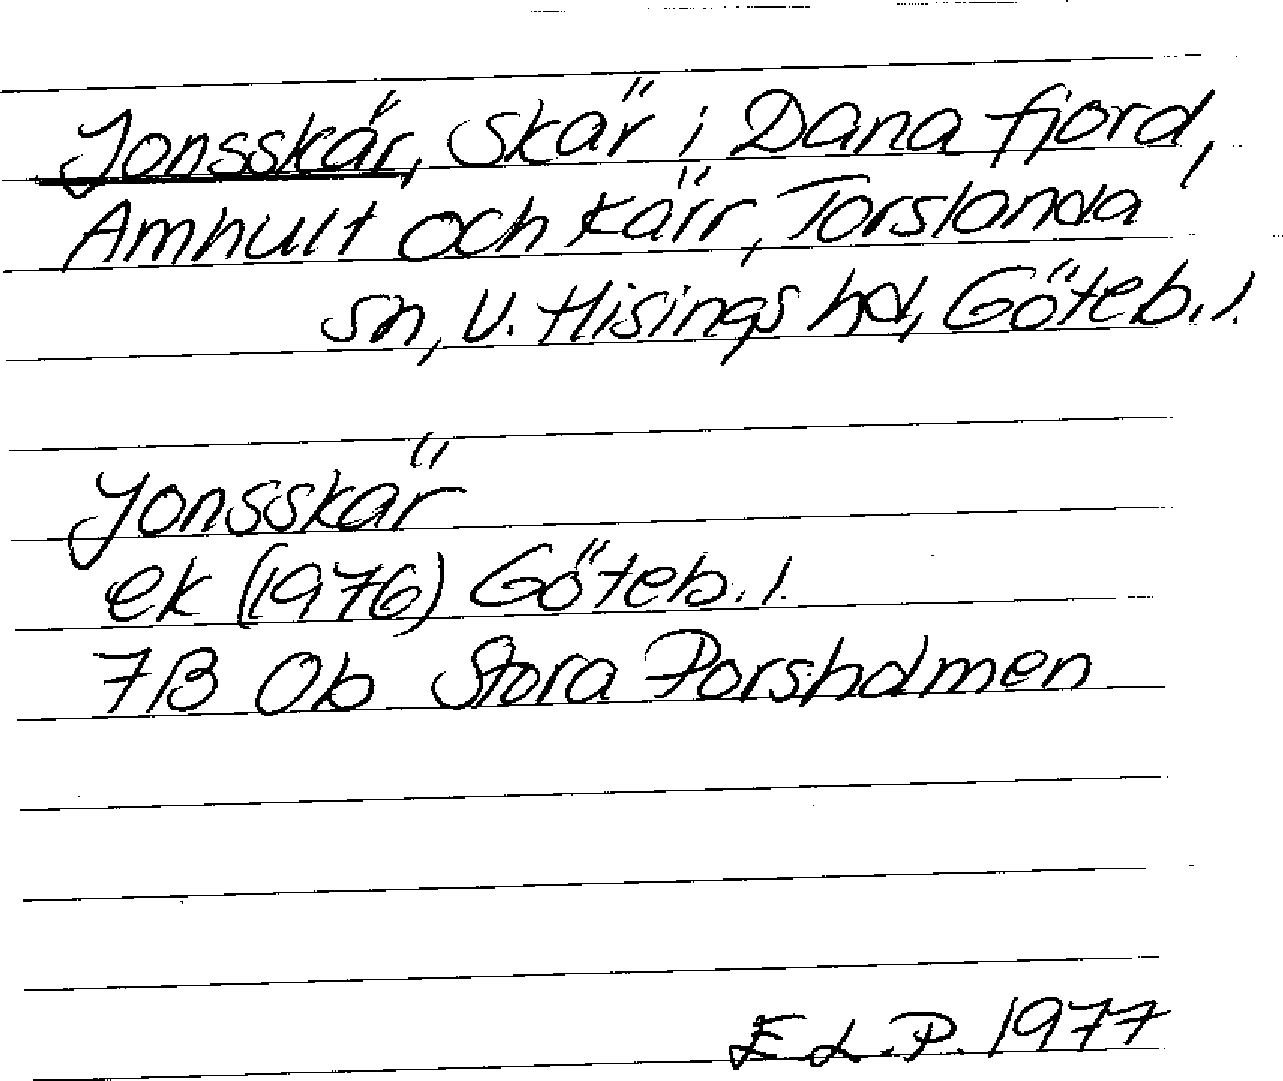 Jonsskär, skär i Dana fjord,
Amhult och Kärr, Torslanda
sn, V. Hisings hd, Göteb. l.
Jonsskär
ek (1976) Göteb. l.
7B 0b Stora Porsholmen
E L.P. 1977